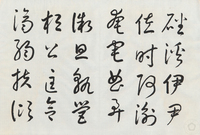 磻溪伊尹
佐時阿衡
奄宅曲阜
微旦孰營
桓公匡合
濟弱扶傾